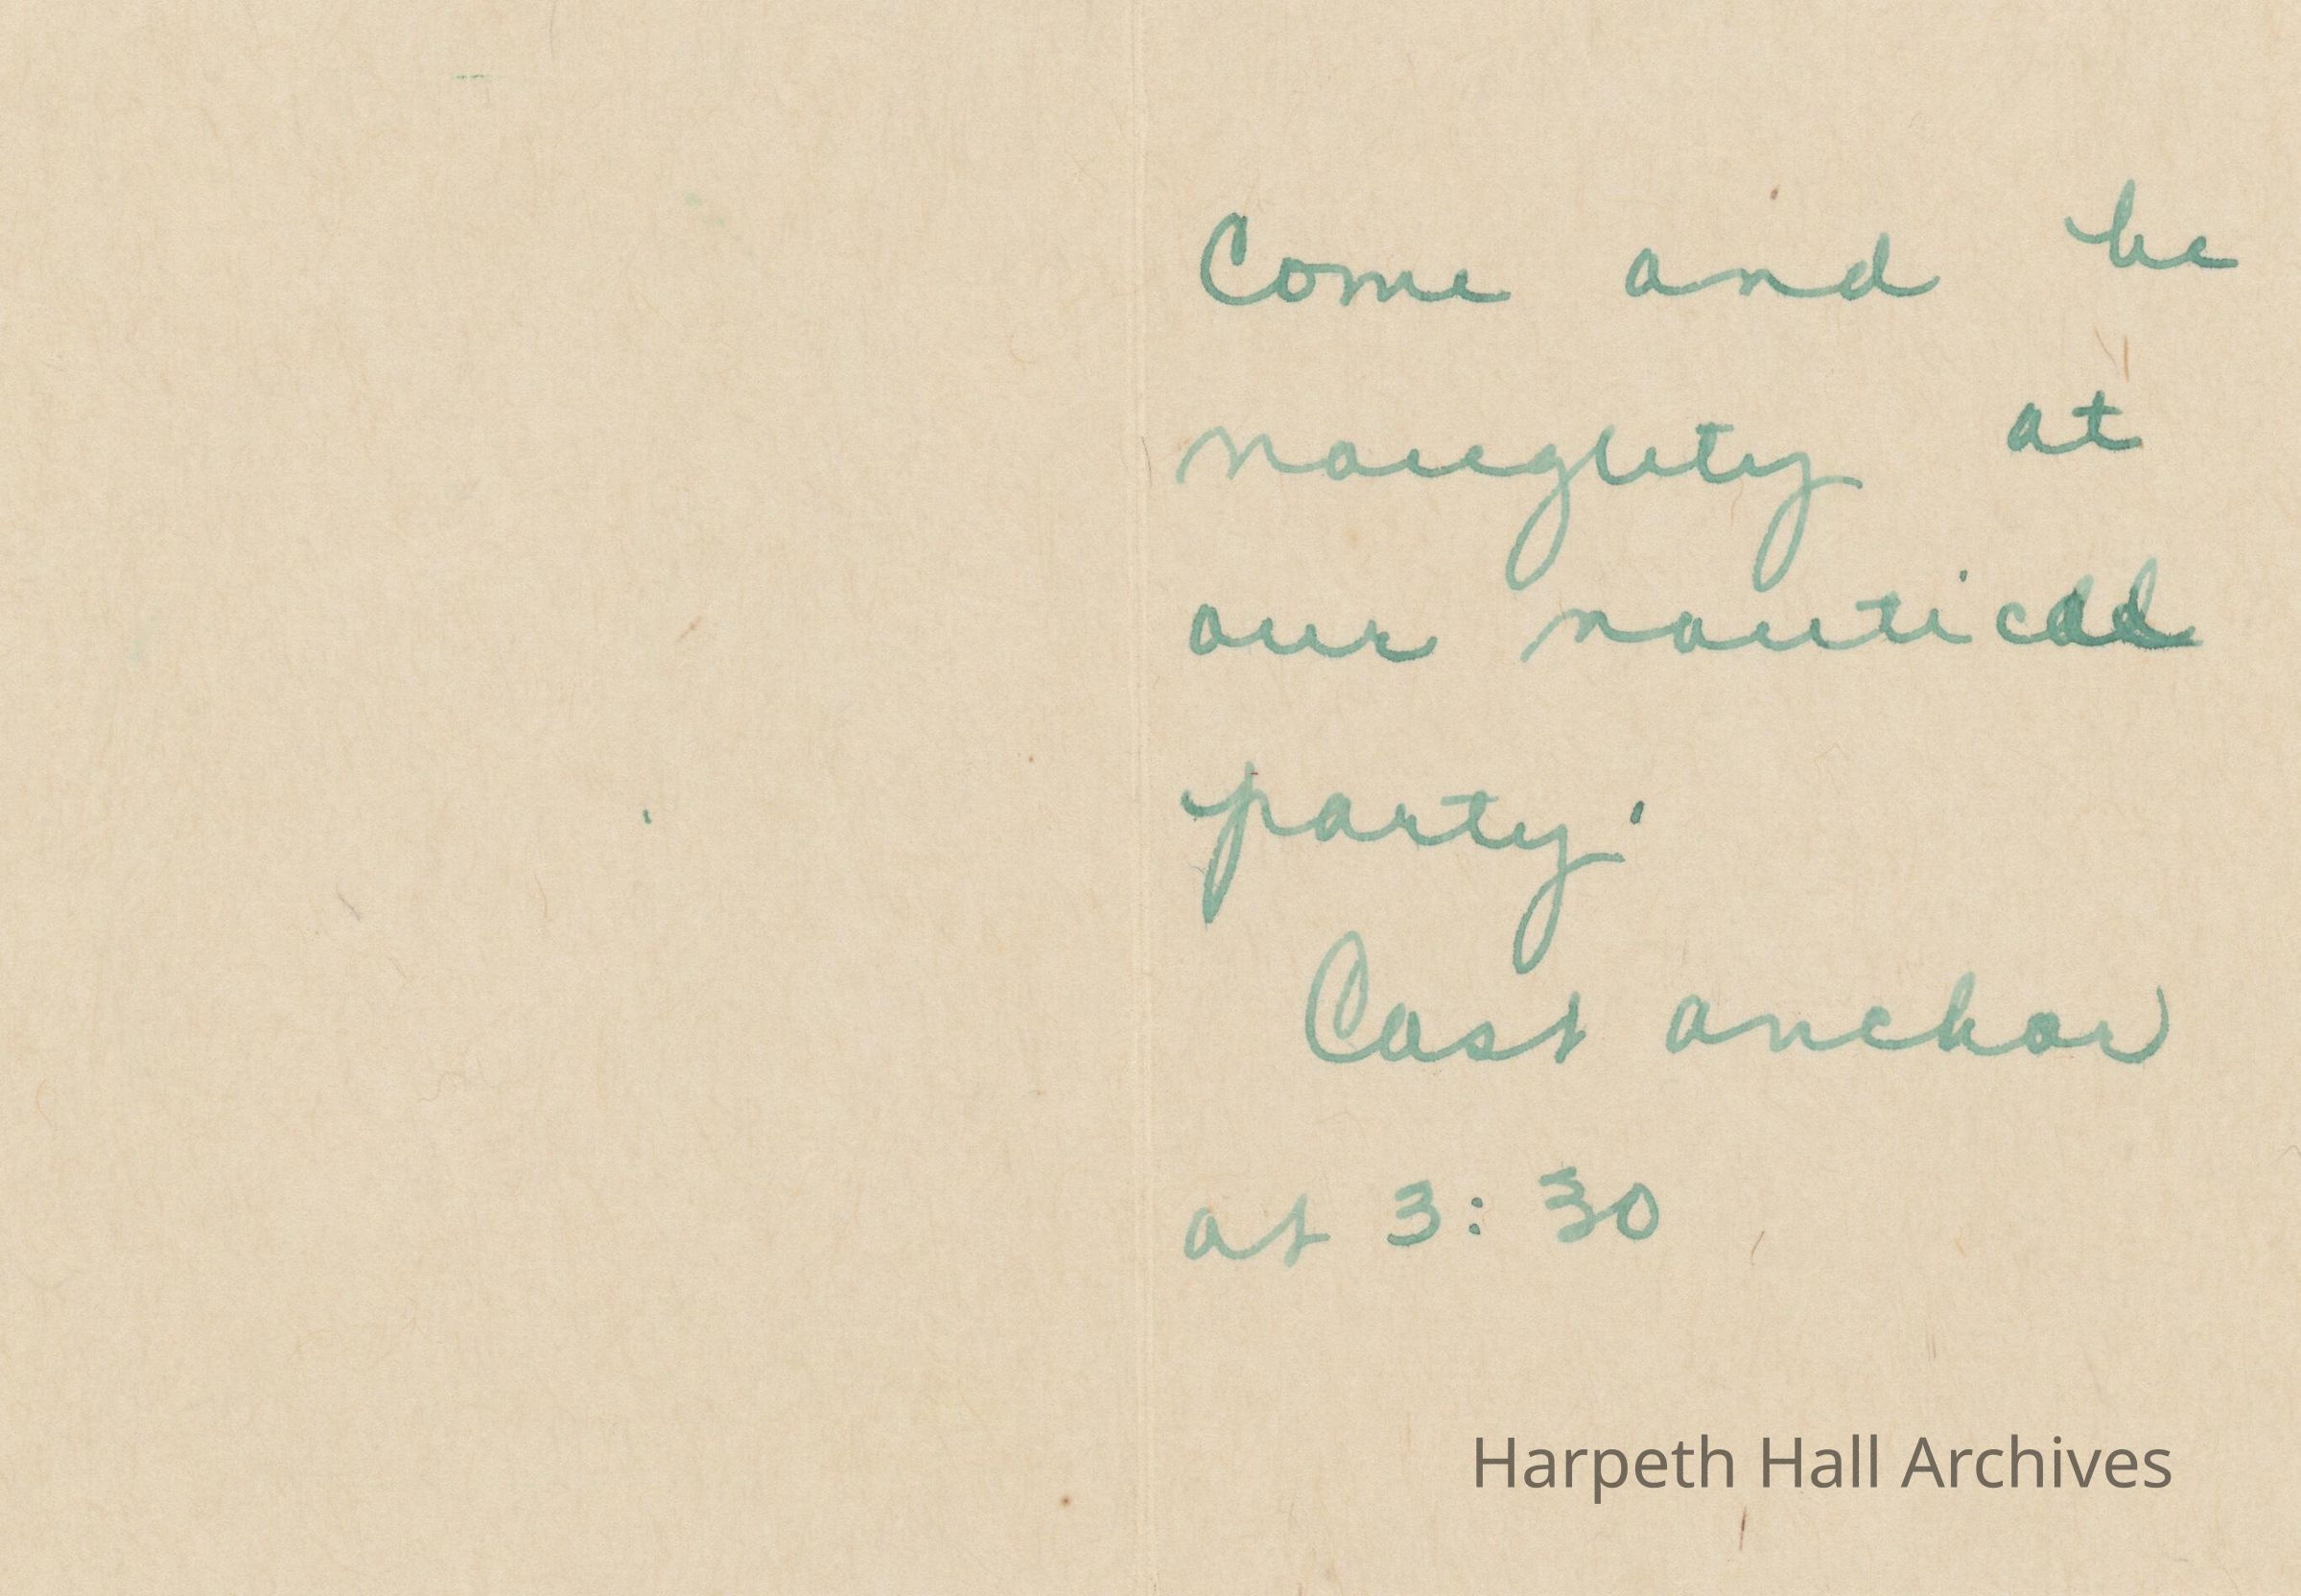 Come and be
naughty at
our nautical
party.
Cast anchor
at 3:30
Harpeth Hall Archives